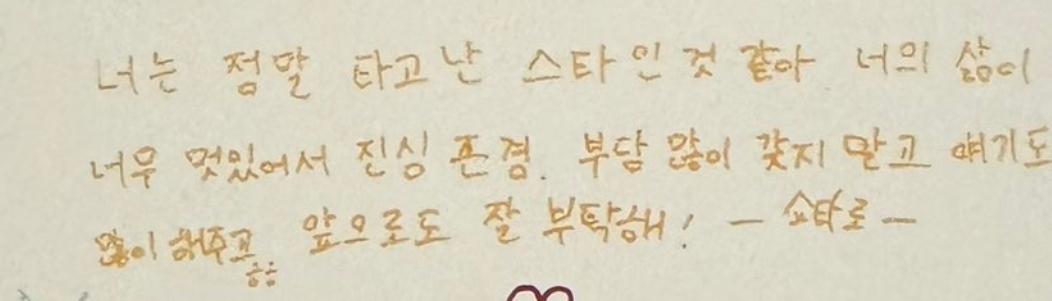 너는 정말 타고난 스타인것 같아 너의 삶이
너무 멋있어서 진심 존경. 부담 많이 갖지 말고 얘기도
많이 해주고 ㅎㅎ 앞으로도 잘 부탁해! - 쇼타로 -